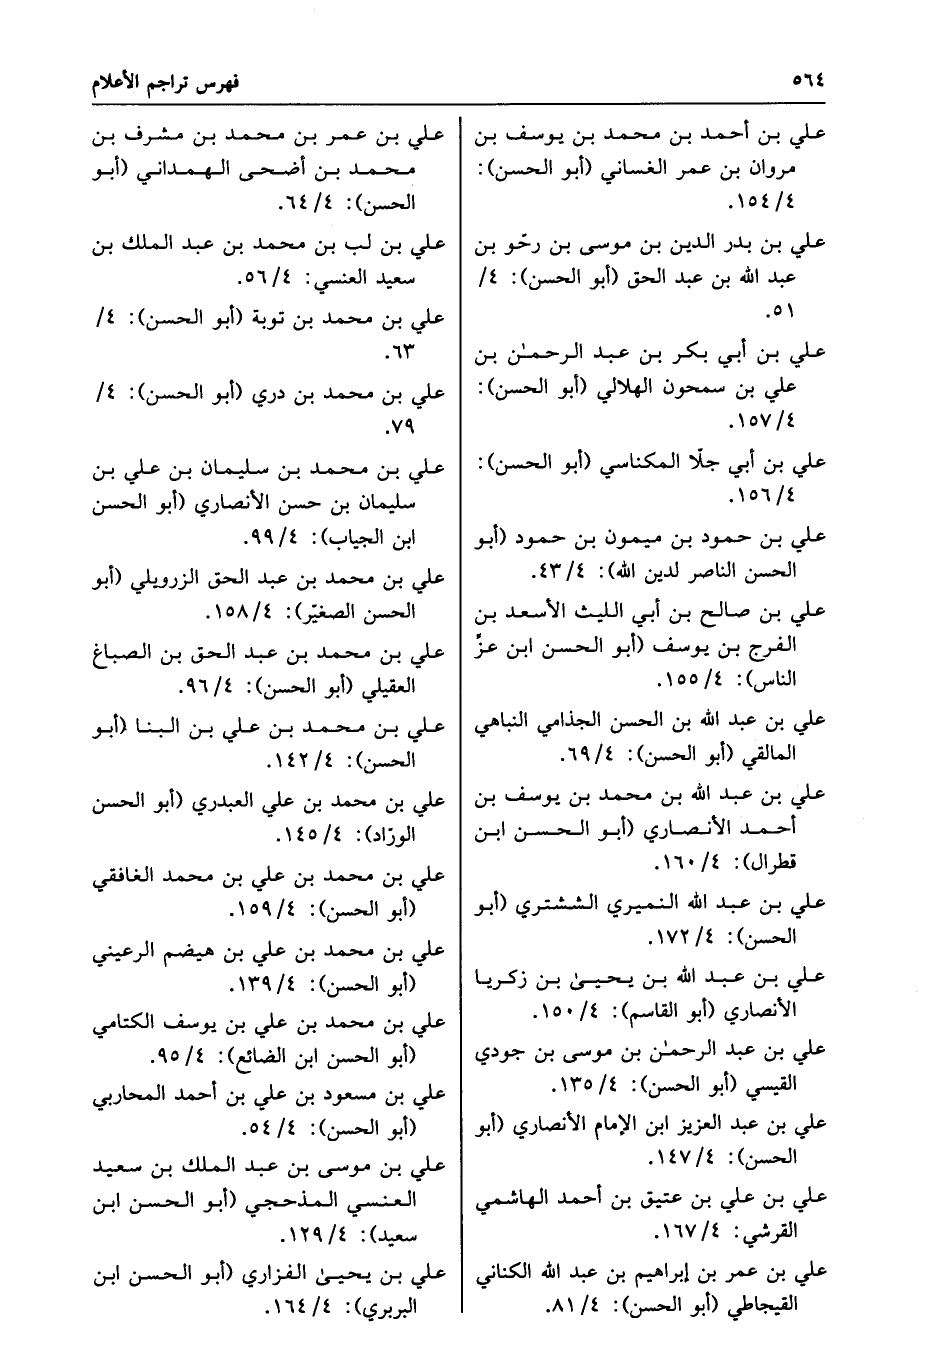 ٥٦٤
فهرس تراجم الأعلام
علي بن أحمد بن محمد بن يوسف بن
مروان بن عمر الغساني (أبو الحسن):
٤/ ١٥٤.
علي بن بدر الدين بن موسى بن رحّو بن
عبد الله بن عبد الحق (أبو الحسن): ٤/
٥١.
علي بن أبي بكر بن عبد الرحمٰن بن
علي بن سمحون الهلالي (أبو الحسن):
٤/ ١٥٧.
علي بن أبي جلّا المكناسي (أبو الحسن):
٤/ ١٥٦.
علي بن حمود بن ميمون بن حمود (أبو
الحسن الناصر لدين الله): ٤/ ٤٣.
علي بن صالح بن أبي الليث الأسعد بن
الفرج بن يوسف (أبو الحسن ابن عزّ
الناس): ٤/ ١٥٥.
علي بن عبد الله بن الحسن الجذامي النباهي
المالقي (أبو الحسن): ٤/ ٦٩.
علي بن عبد الله بن محمد بن يوسف بن
أحمد الأنصاري (أبو الحسن ابن
قطرال): ٤/ ١٦٠.
علي بن عبد الله النميري الششتري (أبو
الحسن): ٤/ ١٧٢.
علي بن عبد الله بن يحيىٰ بن زكريا
الأنصاري (أبو القاسم): ٤/ ١٥٠.
علي بن عبد الرحمٰن بن موسى بن جودي
القيسي (أبو الحسن): ٤/ ١٣٥.
علي بن عبد العزيز ابن الإمام الأنصاري (أبو
الحسن): ٤/ ١٤٧.
علي بن علي بن عتيق بن أحمد الهاشمي
القرشي: ٤/ ١٦٧.
علي بن عمر بن إبراهيم بن عبد الله الكناني
القيجاطي (أبو الحسن): ٤/ ٨١.
علي بن عمر بن محمد بن مشرف بن
محمد بن أضحى الهمداني (أبو
الحسن): ٤/ ٦٤.
علي بن لب بن محمد بن عبد الملك بن
سعيد العنسي: ٤/ ٥٦.
علي بن محمد بن توبة (أبو الحسن): ٤/
٦٣.
علي بن محمد بن دري (أبو الحسن): ٤/
٧٩.
علي بن محمد بن سليمان بن علي بن
سليمان بن حسن الأنصاري (أبو الحسن
ابن الجياب): ٤/ ٩٩.
علي بن محمد بن عبد الحق الزرويلي (أبو
الحسن الصغيّر): ٤/ ١٥٨.
علي بن محمد بن عبد الحق بن الصباغ
العقيلي (أبو الحسن): ٤/ ٩٦.
علي بن محمد بن علي بن البنا (أبو
الحسن): ٤/ ١٤٢.
علي بن محمد بن علي العبدري (أبو الحسن
الورّاد): ٤/ ١٤٥.
علي بن محمد بن علي بن محمد الغافقي
(أبو الحسن): ٤/ ١٥٩.
علي بن محمد بن علي بن هيضم الرعيني
(أبو الحسن): ٤/ ١٣٩.
علي بن محمد بن علي بن يوسف الكتامي
(أبو الحسن ابن الضائع): ٤/ ٩٥.
علي بن مسعود بن علي بن أحمد المحاربي
(أبو الحسن): ٤/ ٥٤.
علي بن موسى بن عبد الملك بن سعيد
العنسي المذحجي (أبو الحسن ابن
سعيد): ٤/ ١٢٩.
علي بن يحيىٰ الفزاري (أبو الحسن ابن
البربري): ٤/ ١٦٤.